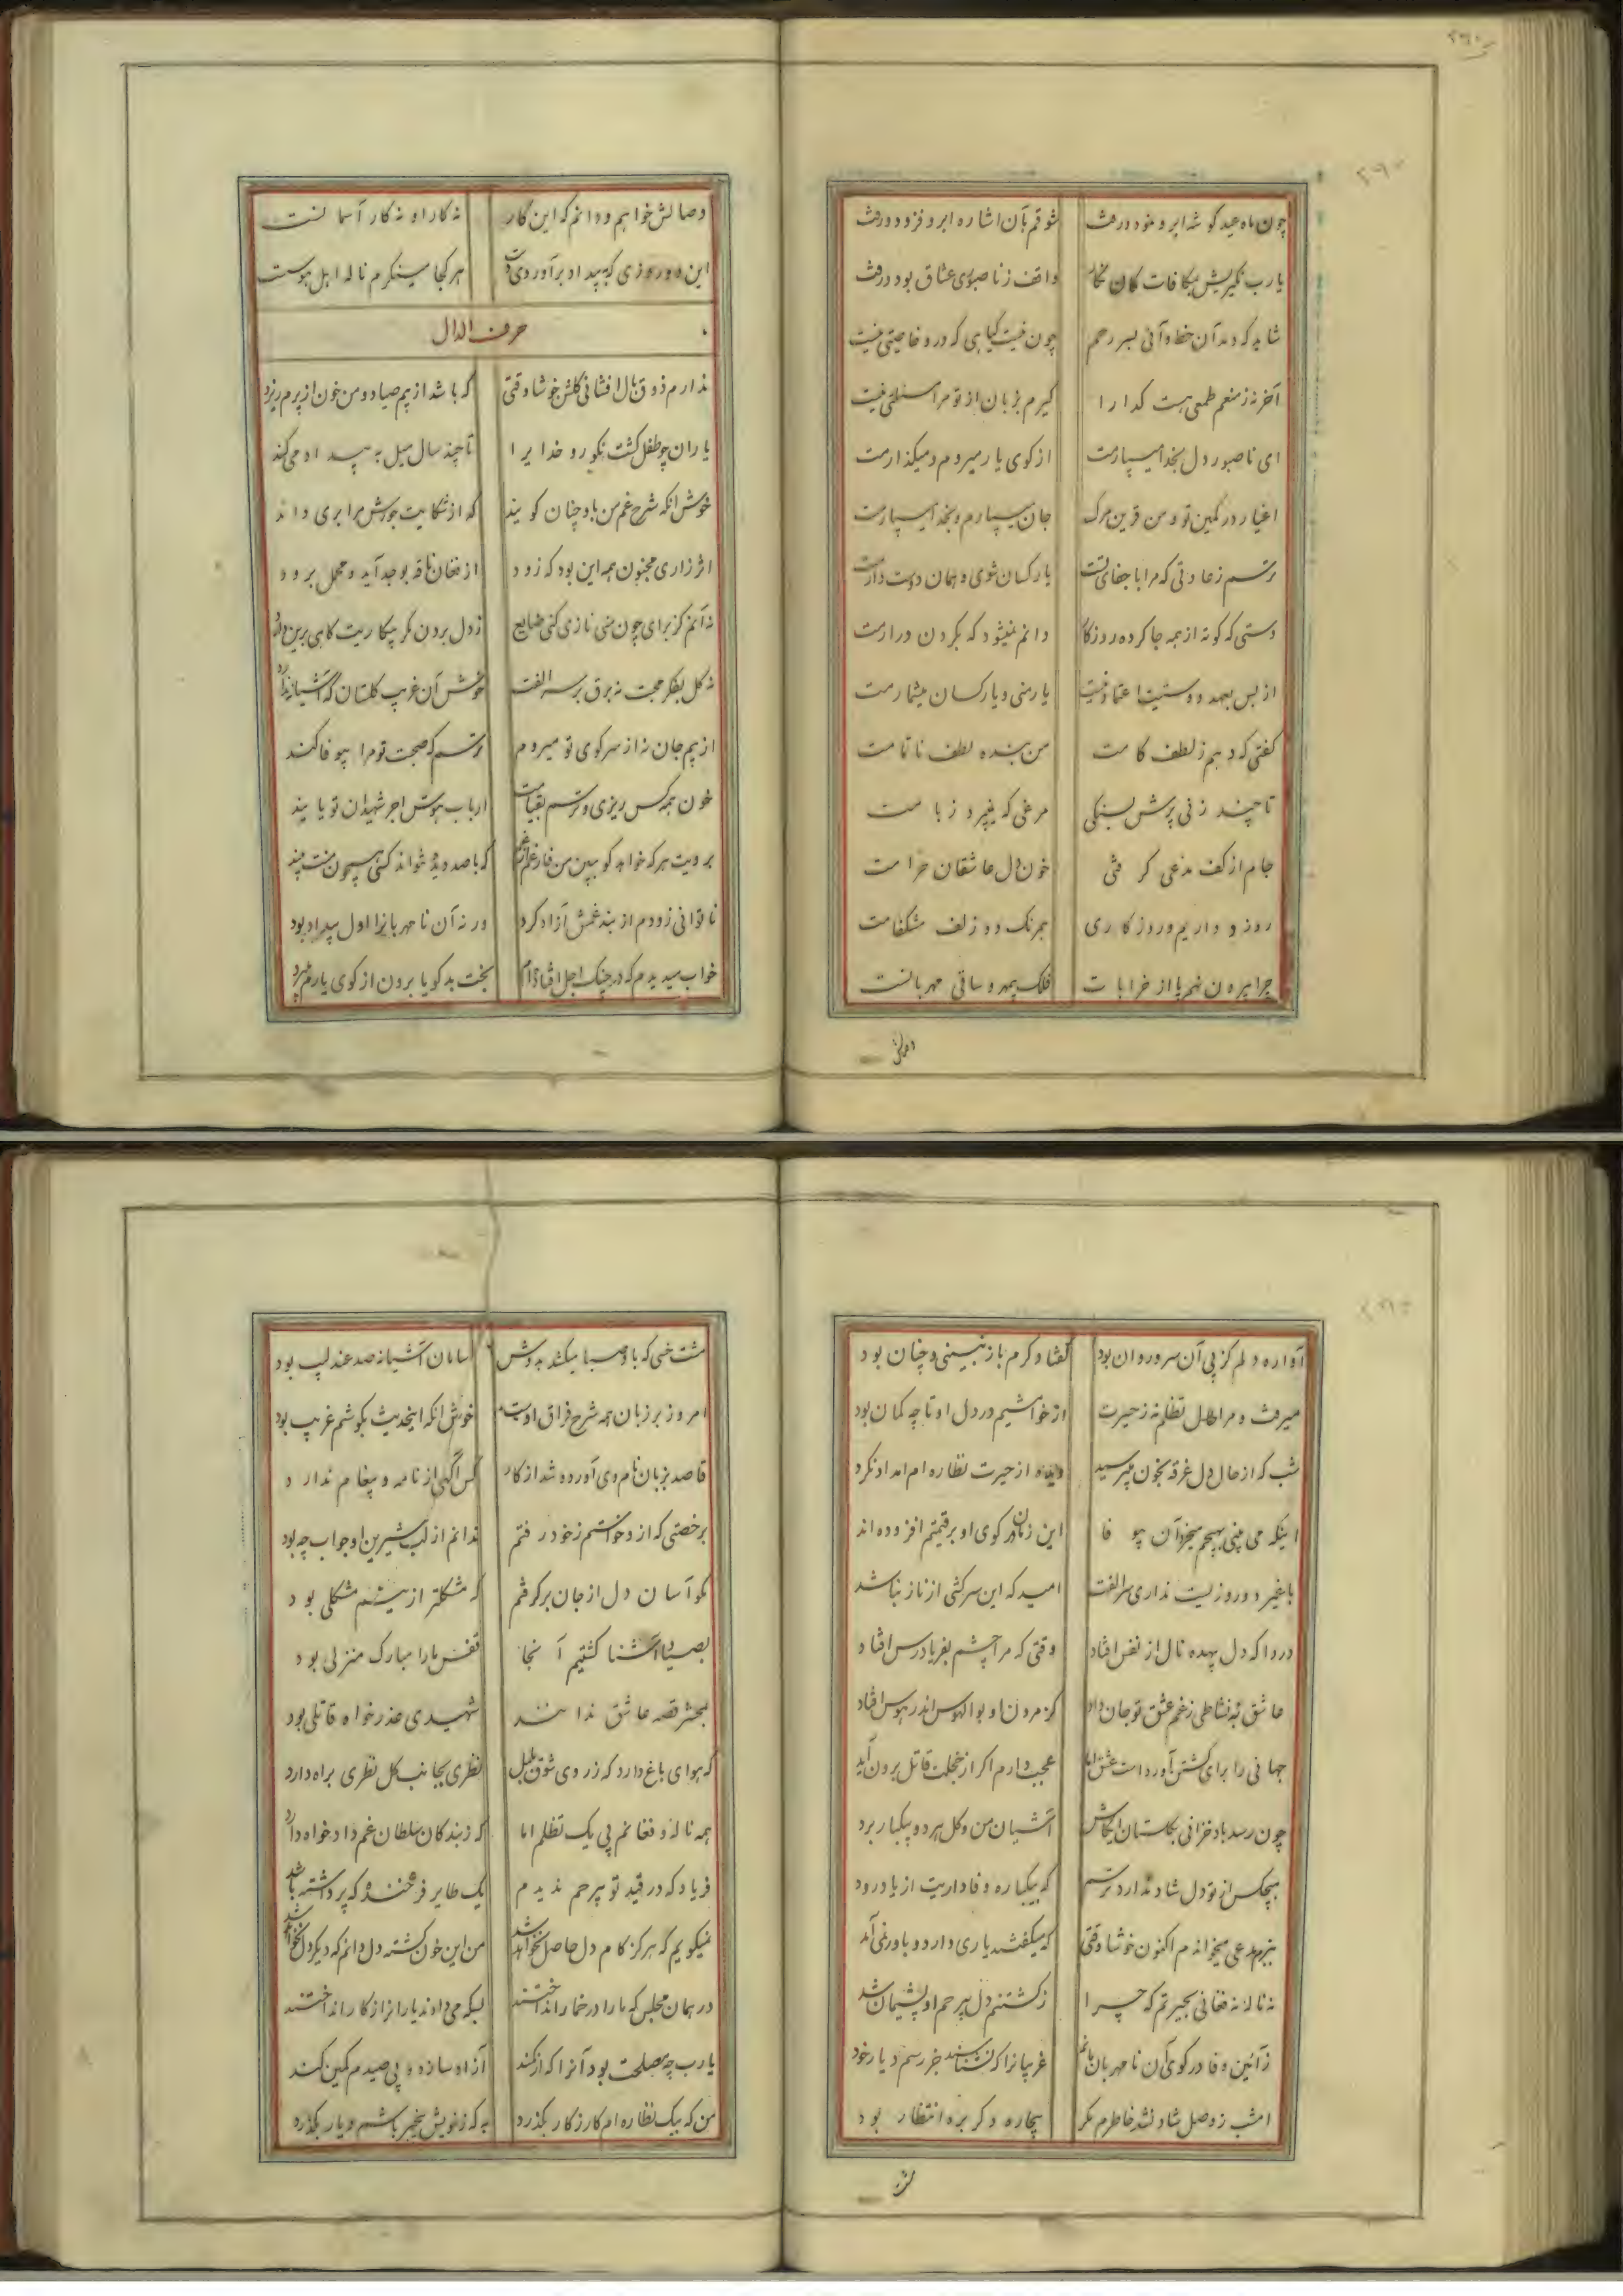 چون ماه عید گوشه ابرو نمود و رفت شوقم بآن اشاره ابرو فزود و رفت
یا رب مگیریش بمکافات کان نگار واقف ز ناصبوری عشاق بود و رفت
شاید که دمد آن خط و آئی بسر رحم چون نیست گیاهی که درو خاصیتی نیست
آخر نه ز منعم طمعی هست گدا را گیرم بزبان از تو مرا مسئلتی نیست
ای ناصبور دل بخدا میسپارمت از کوی یار میروم و میگذارمت
اغیار در کمین تو و من قرین مرگ جان میسپارم و بخدا میسپارمت
ترسم ز عادتی که مرا با جفای تست یار کسان شوی و همان دوست دارمت
دستی که کوته از همه جا کرده روزگار دانم نمیشود که بگردن درارمت
از بس بعهد دوستیت اعتماد نیست یار منی و یار کسان میشمارمت
گفتی که دهم ز لطف کامت من بنده لطف ناتمامت
تا چند زنی پرش بسنگی مرغی که نمیپرد ز بامت
جام از کف مدعی گرفتی خون دل عاشقان حرامت
روز و داریم و روزگاری همرنگ دو زلف مشکفامت
چرا بیرون نهم پا از خرابات فلک بیمهر و ساقی مهربانست
وصالش
وصالش خواهم و دانم که این کار نه کار او نه کار آسمانست
هر کجا مینگرم ناله اهل هوست
حرف الدال
ندارم ذوق بال افشانی گلشن خوشا وقتی که باشد از پیم صیاد و من خون از پرم ریزد
یاران چو طفل گشت نکورو خدایرا تا چند سال میل به بیداد می‌کند
خوش آنکه شرح غم من باو چنان گویند که از شکایت جورش مرا بری داند
اثر زاری مجنون همه این بود که زود از فغان ناقه بوجد آید و محمل برود
نه گل بفکر محبت نه برق بر سر الفت خوش آن غریب گلستان که آشیانه ندارد
از بیم جان نه از سر کوی تو میروم ترسم که صحبت تو مرا بیوفا کند
خون همه کس ریزی و ترسم بقیامت ارباب هوس اجر شهیدان تو یابند
ناتوانی زودم از بند غمش آزاد کرد ورنه آن نامهربانرا اول بیداد بود
خواب میدیدم که در چنگ اجل افتاده‌ام بخت بد گویا برون از کوی یارم میبرد
آواره دلم کز پی آن سرو روان بود گفتا و گرم باز نبینی و چنان بود
میرفت و مرا حال تظلم نه ز حیرت از خواهشیم در دل او تا چه گمان بود
شب که از حال دل غرقه بخون میپرسید از حیرت نظاره‌ام امداد نکرد
اینکه می بینی بهیچم میخرد آن بیوفا این زمان در کوی او بر قیمتم افزوده‌اند
با غیر دو روزیست نداری سر الفت امید که این سرکشی از ناز نباشد
دردا که دل بیهده نال از نفس افتاد وقتی که مرا چشم بفریادرس افتاد
عاشق به نشاطی ز غم عشق تو جان داد کز مردن او بوالهوس اندر هوس افتاد
جهانی را برای کشتن آورده است عشق اما عجب دارم اگر از خجلت قاتل برون آید
چون رسد باد خزانی بگلستان ایکاش آشیان من و گل هر دو بیکبار برد
هیچکس از تو دل شاد ندارد ترسم که بیکباره وفاداریت از یاد رود
ببزم مدعی میخواندم اکنون خوشا وقتی که میگفتند یاری دارد و باور نمی‌آمد
نه ناله نه فغانی بحیرتم که چرا ز کشتنم دل بیرحم او پشیمان شد
ز آئین وفا در کوی آن نامهربان مانم غریبانرا که نشناسند جز رسم دیار خود
امشب ز وصل شاد نشد خاطرم مگر بیچاره دگر بره انتظار بود
مشت
مشت خسی که باد صبا میکشد بدوش سامان آشیانه صد عندلیب بود
امروز بر زبان همه شرح فراق اوست خوش آنکه اینحدیث بگوشم غریب بود
قاصد بزبان نام وی آورده شد از کار کس آگهی از نامه و پیغام ندارد
برخصتی که ازو خواستم ز خود رفتم ندانم از لب شیرین او جواب چه بود
مگو آسان دل از جان برگرفتم که مشکلتر ازینم مشکلی بود
بصیاد آشنا گشتیم آنجا قفس ما را مبارک منزلی بود
بمحشر قصه عاشق ندانند شهیدی عذرخواه قاتلی بود
که هوای باغ دارد که ز روی شوق بلبل نظری بجانب گل نظری براه دارد
همه ناله و فغانم پی یک تظلم اما که ز بندگان سلطان غم دادخواه دارد
فریاد که در قید تو بیرحم ندیدم یک طایر فرخنده که پر داشته باشد
نمیگویم که هرگز کام دل حاصل نخواهد شد من این خون گشته دل دانم که دیگر دل نخواهد شد
در همان مجلس که ما را در خمار انداختند بسکه می دادند یاران را ز کار انداختند
یا رب چه مصلحت بود آنرا که از کمند آزاد سازد و پی صیدم کمین کند
من که بیک نظاره‌ام کار ز کار بگذرد به که ز خویش بیخبر باشم و یار بگذرد